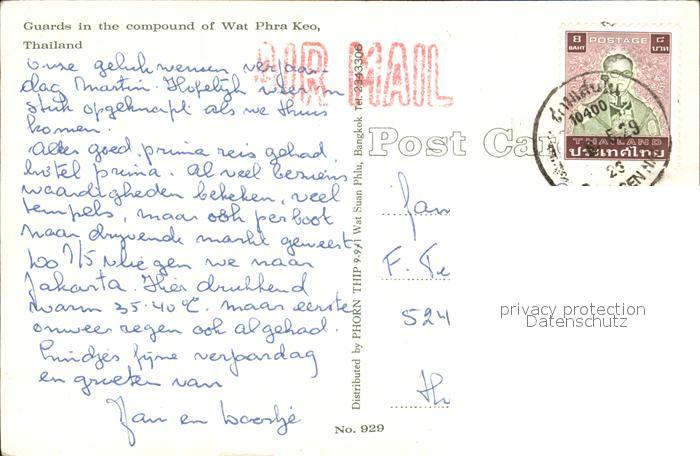 Guards in the compound of Wat Phra Keo,
Thailand
AIR MAIL
8 POSTAGE ๘
BAHT บาท
THAILAND
ประเทศไทย
10400
23
Post Ca
onze gelukwensen verjaar-
dag Martin. Hopelijk weer een
stuk opgeknapt als we thuis
komen.
Alles goed, prima reis gehad,
hotel prima. Al veel beziens
waardigheden bekeken, veel
tempels, maar ook per boot
naar drijvende markt geweest
Wo 7/5 vliegen we naar
Jakarta. Hier drukkend
warm 35-40°C. maar eerste
onweer regen ook al gehad.
fijne verjaardag
en groeten van
Jan en
Distributed by PHORN THIP 9-9/1 Wat Suan Phlu, Bangkok Tel. 2343306
Fam
F. Te
524
Th
No. 929
privacy protection
Datenschutz